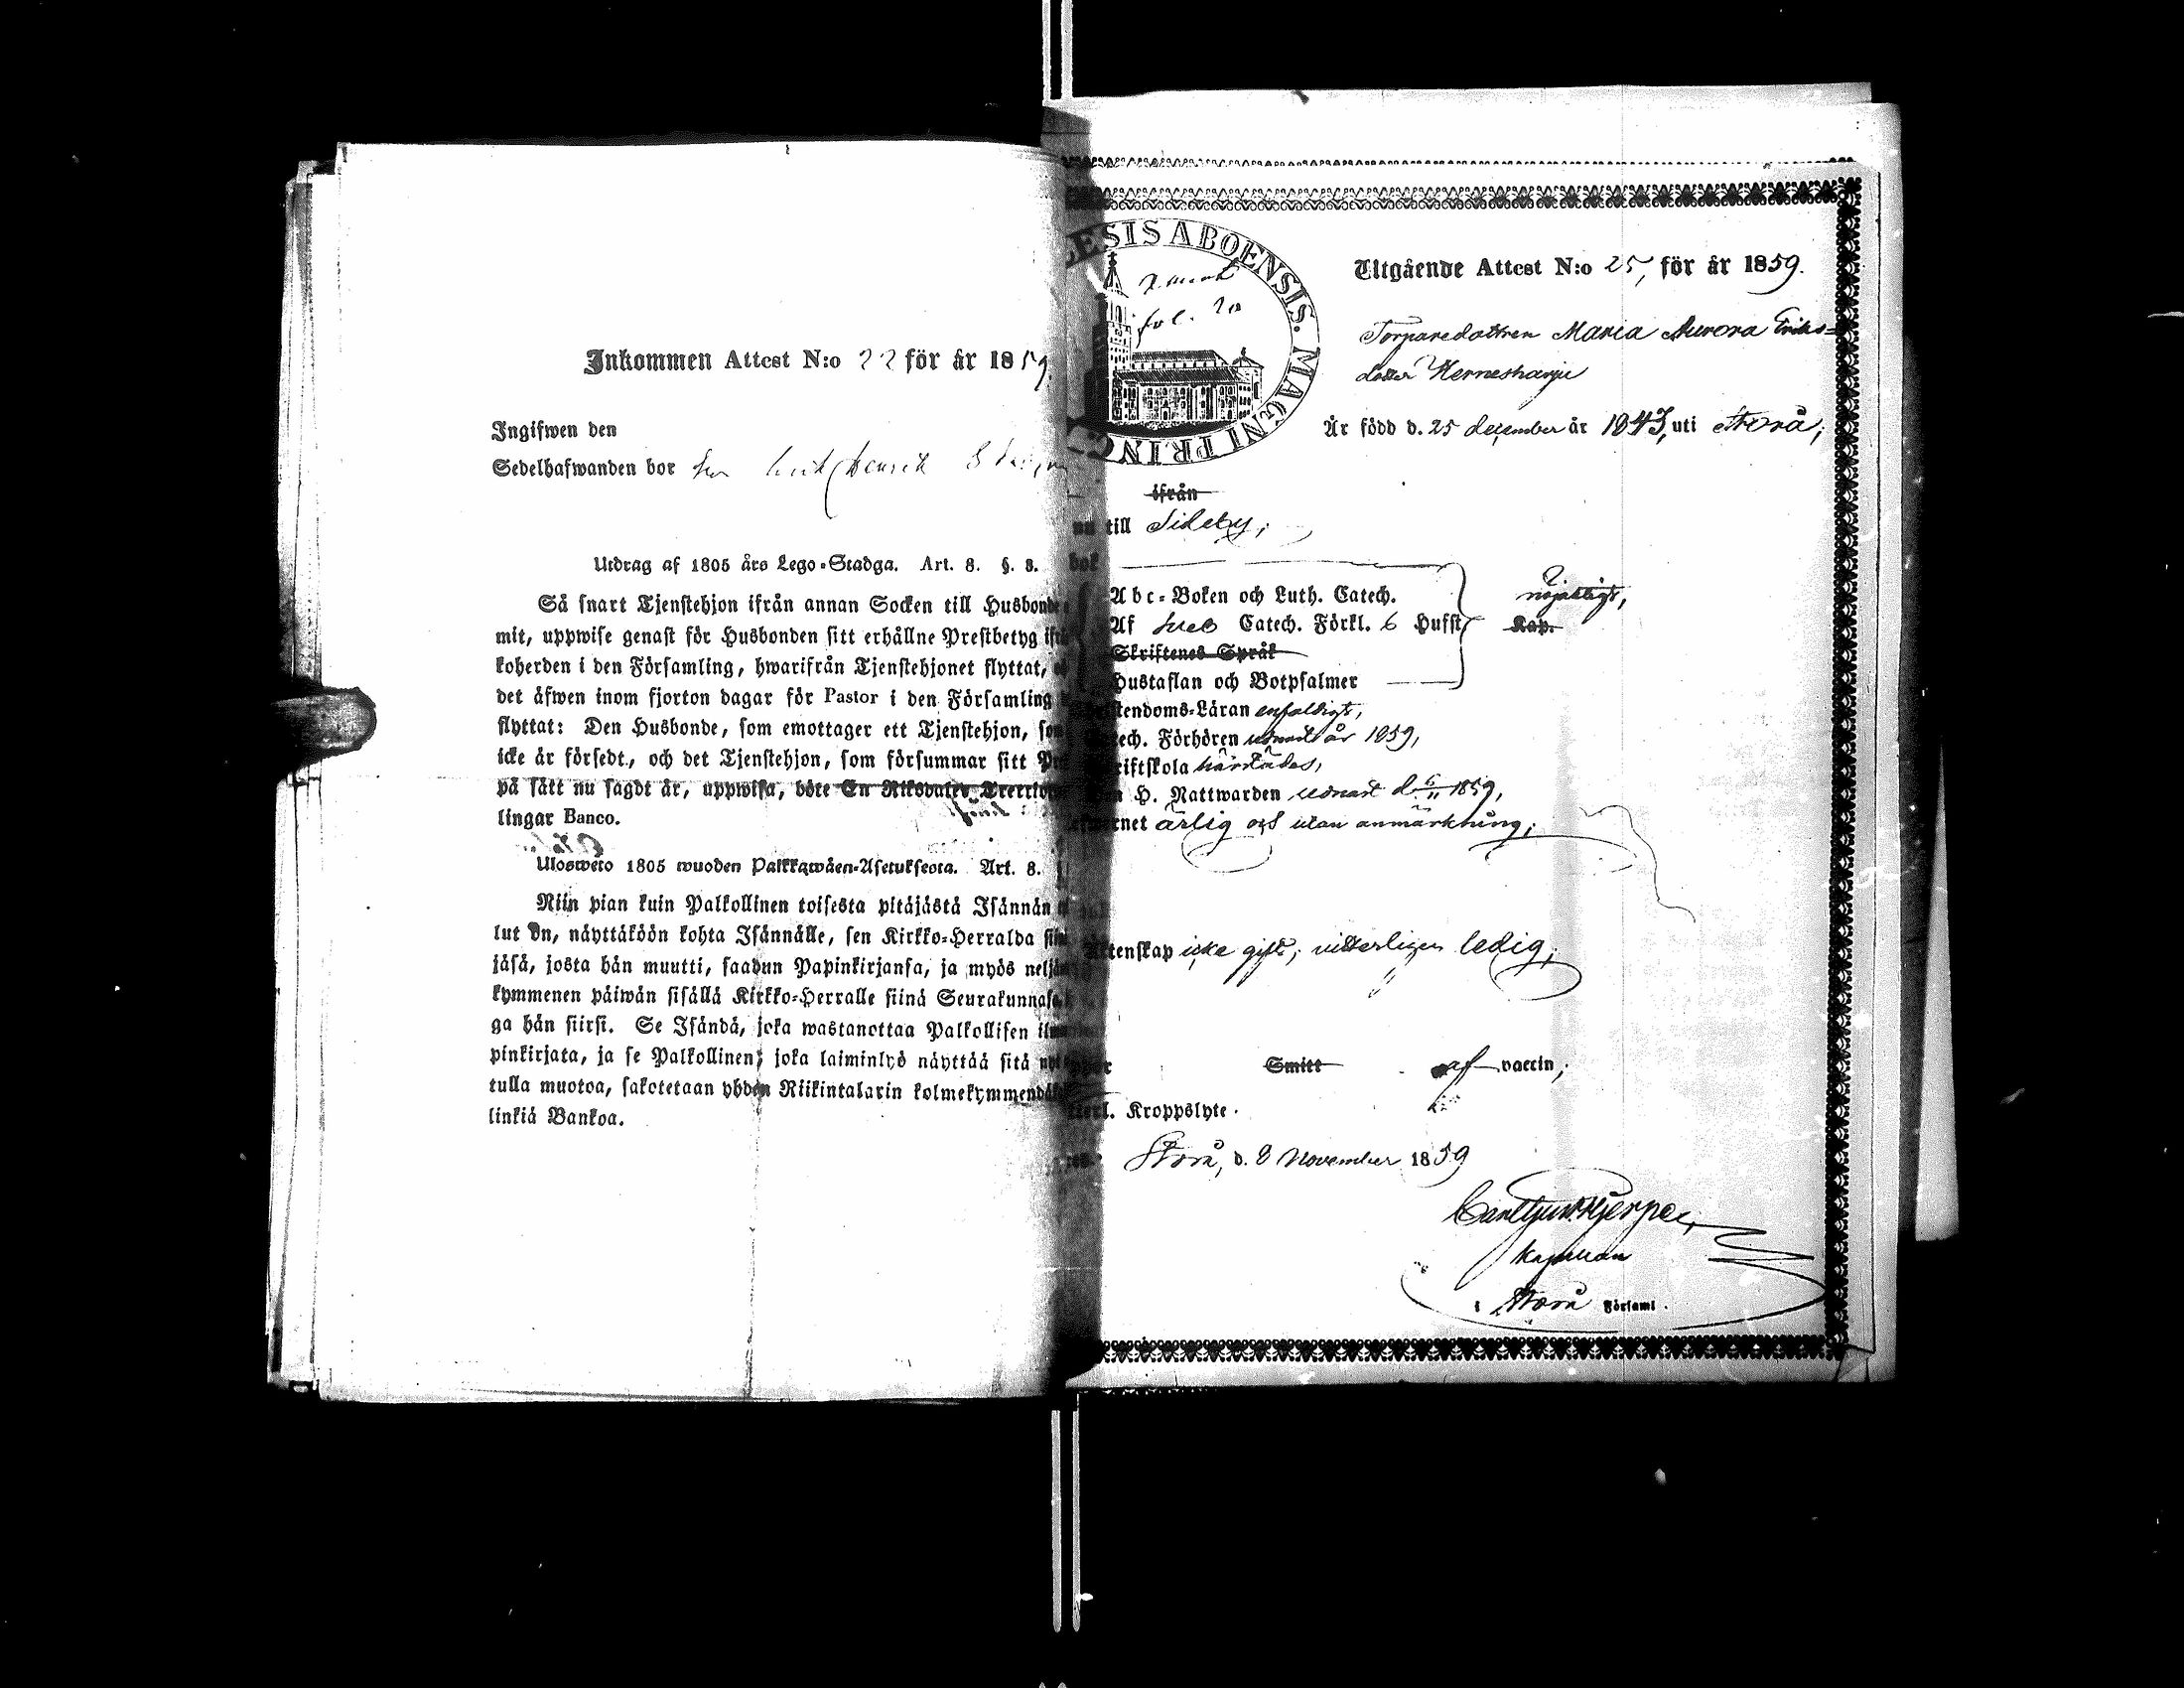 Inkommen Attest N:o 22 för år 1859.
Ingifwen den
Sedelhafwanden bor
Utdrag af 1805 års Lego-Stadga. Art. 8. §. 8.
Så snart Tjenstehjon ifrån annan Socken till Husbonde
mit, uppwise genast för Husbonden sitt erhållne Prestbetyg
koherden i den Församling, hwarifrån Tjenstehjonet flyttat,
det äfwen inom fjorton dagar för Pastor i den Församling
flyttat: Den Husbonde, som emottager ett Tjenstehjon,
icke är försedt, och det Tjenstehjon, som försummar sitt
på sätt nu sagdt är, uppwisa, böte En Riksdaler
lingar Banco.
Ulosweto 1805 wuoden Palkkawäen-Asetuksesta. Art. 8.
Niin pian kuin Palkollinen toisesta pitäjästä Isännän
lut on, näyttäköön kohta Isännälle, sen Kirkko-Herralda
jäsä, josta hän muutti, saadun Papinkirjansa, ja myös
kymmenen päiwän sisällä Kirkko-Herralle siinä
ga hän siirsi. Se Isändä, joka wastanottaa Palkollisen
pinkirjata, ja se Palkollinen, joka laiminlyö näyttää sitä
tulla muotoa, sakotetaan yhden Riikintalarin
linkiä Bankoa.
ESIS ABOENSIS. MAGNI PRINC
fol. 20
Utgående Attest N:o 25, för år 1859.
Torparedottren Maria Aurora Eriks-
dotter Hernesharju
Är född d. 25 december år 1843, uti Storå;
ifrån
nu till Sideby;
bok
Abc-Boken och Luth. Catech.
nöjaktigt,
Af Sveb Catech. Förkl. 6 Hufst Kap.
Skriftenes Språk
Hustaflan och Botpsalmer
stendoms-Läran enfaldigt,
ech. Förhören senast år 1859,
riftskola härstädes,
n H. Nattwarden senast d. 6/11 1859,
ärlig och utan anmärkning;
Äktenskap icke gift; vitterligen ledig;
Smitt af vaccin;
Kroppslyte.
Storå, d. 8 November 1859
Kapellan
i Storå Församl.